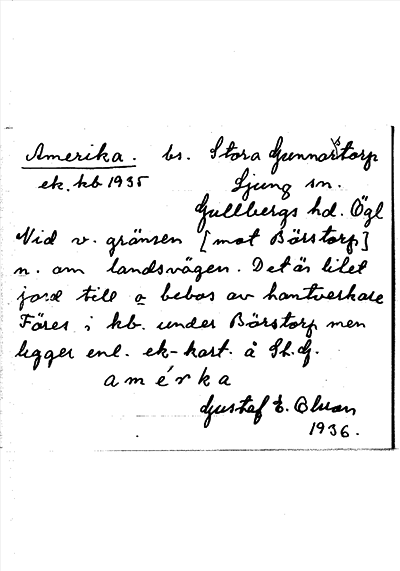 Amerika. bs. Stora Gunnarstorp
ek. kb 1935 Ljung sn.
Gullbergs hd. Ögl
Vid v. gränsen [mot Börstorp]
n. om landsvägen. Det är litet
jord till o bebos av hantverkare
Föres i kb. under Börstorp men
ligger enl. ek-kart. å St. G.
amérka
Gustaf E. Olson
1936.